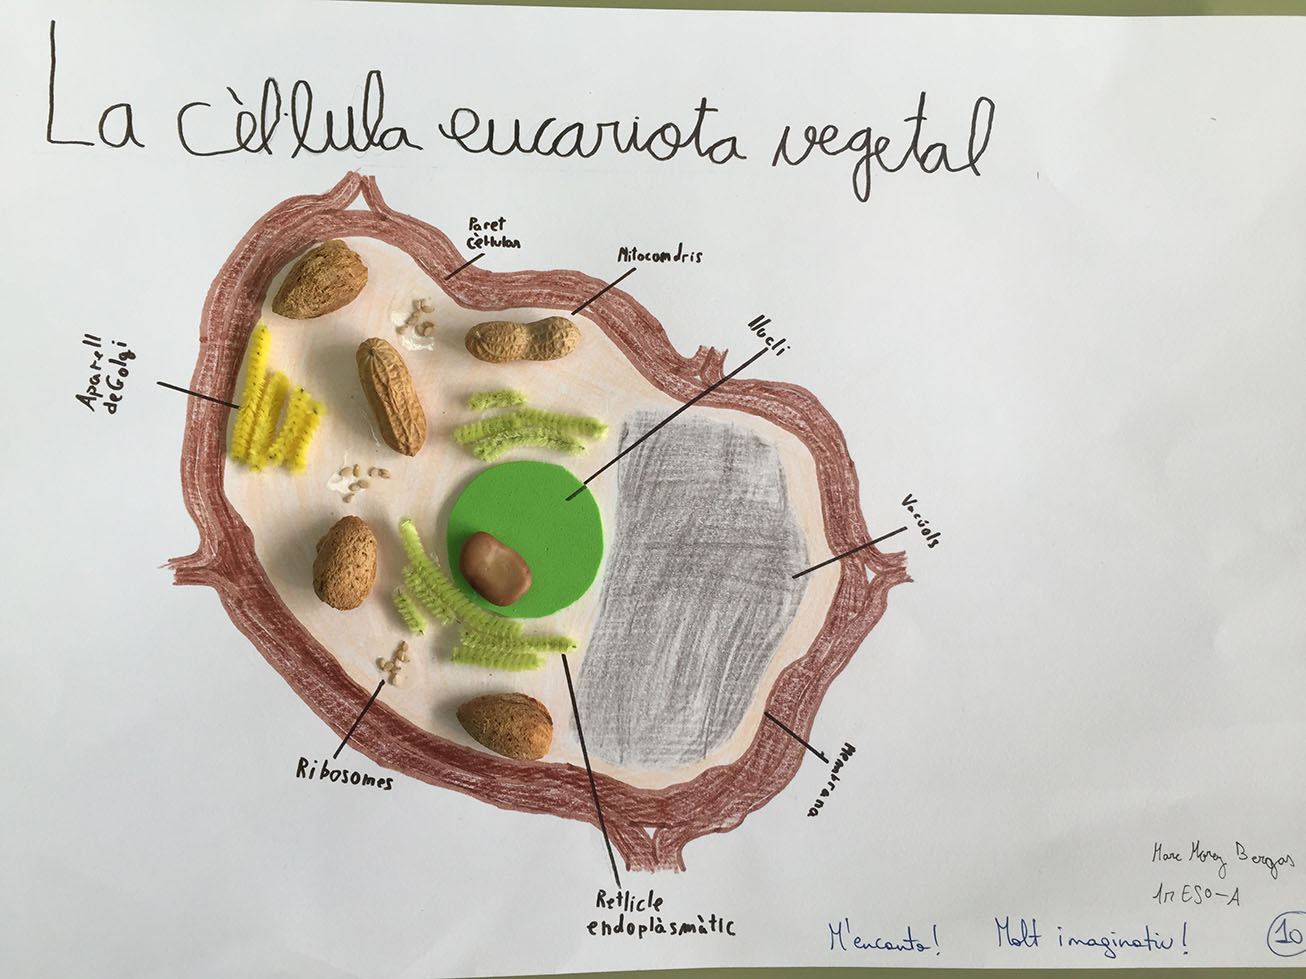 La cèl·lula eucariota vegetal
Paret
Cèl·lular
Mitocondris
Nucli
Aparell
de Golgi
Vacúols
Ribosomes
Membrana
Retlicle
endoplàsmàtic
Marc Morey Bergas
1r ESO-A
M'encanta! Molt imaginatiu! 10